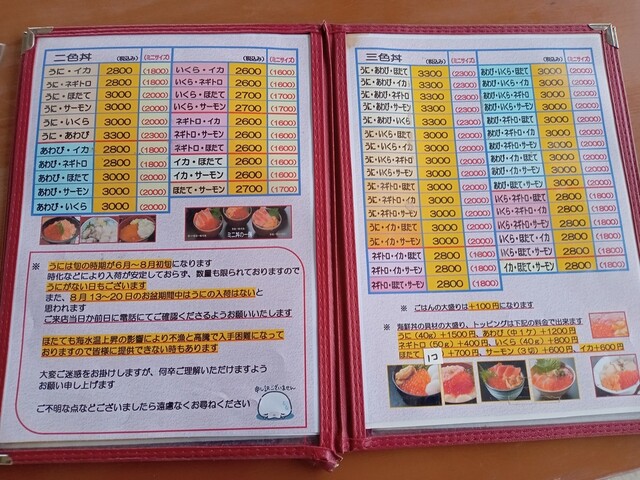 二色丼 (税込み) (ミニサイズ)
うに・イカ 2800 (1800)
うに・ネギトロ 3000 (2000)
うに・ほたて 3000 (2000)
うに・サーモン 3000 (2000)
うに・いくら 3000 (2000)
うに・あわび 3300 (2300)
あわび・イカ 2800 (1800)
あわび・ネギトロ 3000 (2000)
あわび・ほたて 3000 (2000)
あわび・サーモン 3000 (2000)
あわび・いくら 3000 (2000)
(税込み) (ミニサイズ)
いくら・イカ 2600 (1600)
いくら・ネギトロ 2600 (1600)
いくら・ほたて 2700 (1700)
いくら・サーモン 2700 (1700)
ネギトロ・イカ 2600 (1600)
ネギトロ・サーモン 2600 (1600)
ネギトロ・ほたて 2600 (1600)
イカ・ほたて 2600 (1600)
イカ・サーモン 2600 (1600)
ほたて・サーモン 2700 (1700)
ミニ丼の一例
※ うには旬の時期が6月～8月初旬になります
時化などにより入荷が安定しておらず、数量も限られておりますので
うにがない日もございます
また、8月13～20日のお盆期間中はうにの入荷はないと
思われます
ご来店当日か前日に電話にてご確認くださるようお願いいたします
ほたても海水温上昇の影響により不漁と高騰で入手困難になって
おりますので皆様に提供できない時もあります
大変ご迷惑をお掛けしますが、何卒ご理解いただけますよう
お願い申し上げます
ご不明な点などございましたら遠慮なくお尋ねください
申し訳ございません
三色丼 (税込み) (ミニサイズ)
うに・あわび・ほたて 3300 (2300)
うに・あわび・イカ 3300 (2300)
うに・あわび・ネギトロ 3300 (2300)
うに・あわび・サーモン 3300 (2300)
うに・いくら・ほたて 3000 (2000)
うに・いくら・イカ 3000 (2000)
うに・いくら・ネギトロ 3000 (2000)
うに・いくら・サーモン 3000 (2000)
うに・ネギトロ・ほたて 3000 (2000)
うに・ネギトロ・イカ 3000 (2000)
うに・ネギトロ・サーモン 3000 (2000)
うに・イカ・ほたて 3000 (2000)
うに・イカ・サーモン 3000 (2000)
ネギトロ・イカ・サーモン 2800 (1800)
ネギトロ・イカ・ほたて 2800 (1800)
(税込み) (ミニサイズ)
あわび・いくら・ほたて 3000 (2000)
あわび・いくら・イカ 3000 (2000)
あわび・いくら・ネギトロ 3000 (2000)
あわび・いくら・サーモン 3000 (2000)
あわび・ネギトロ・ほたて 3000 (2000)
あわび・ネギトロ・イカ 3000 (2000)
あわび・ネギトロ・サーモン 3000 (2000)
あわび・イカ・ほたて 3000 (2000)
あわび・イカ・サーモン 3000 (2000)
あわび・ほたて・サーモン 3000 (2000)
いくら・ネギトロ・ほたて 2800 (1800)
いくら・ネギトロ・イカ 2800 (1800)
いくら・ネギトロ・サーモン 2800 (1800)
いくら・イカ・ほたて 2800 (1800)
いくら・イカ・サーモン 2800 (1800)
イカ・ほたて・サーモン 2800 (1800)
※ ごはんの大盛りは+100円になります
※ 海鮮丼の具材の大盛り、トッピングは下記の料金で出来ます
うに(40g)+1500円、あわび(中1ケ)+1200円
ネギトロ(50g)+400円、いくら(40g)+800円
ほたて 1コ +700円、サーモン(3切)+600円、イカ+600円